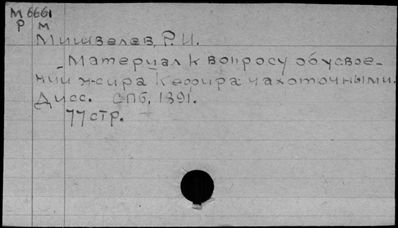 М 6661
Р м
Мишвелев, Р. И.
- Материал к вопросу об усвое-
нии жира кефира чахоточными.
Дисс. СПб, 1891.
77 стр.